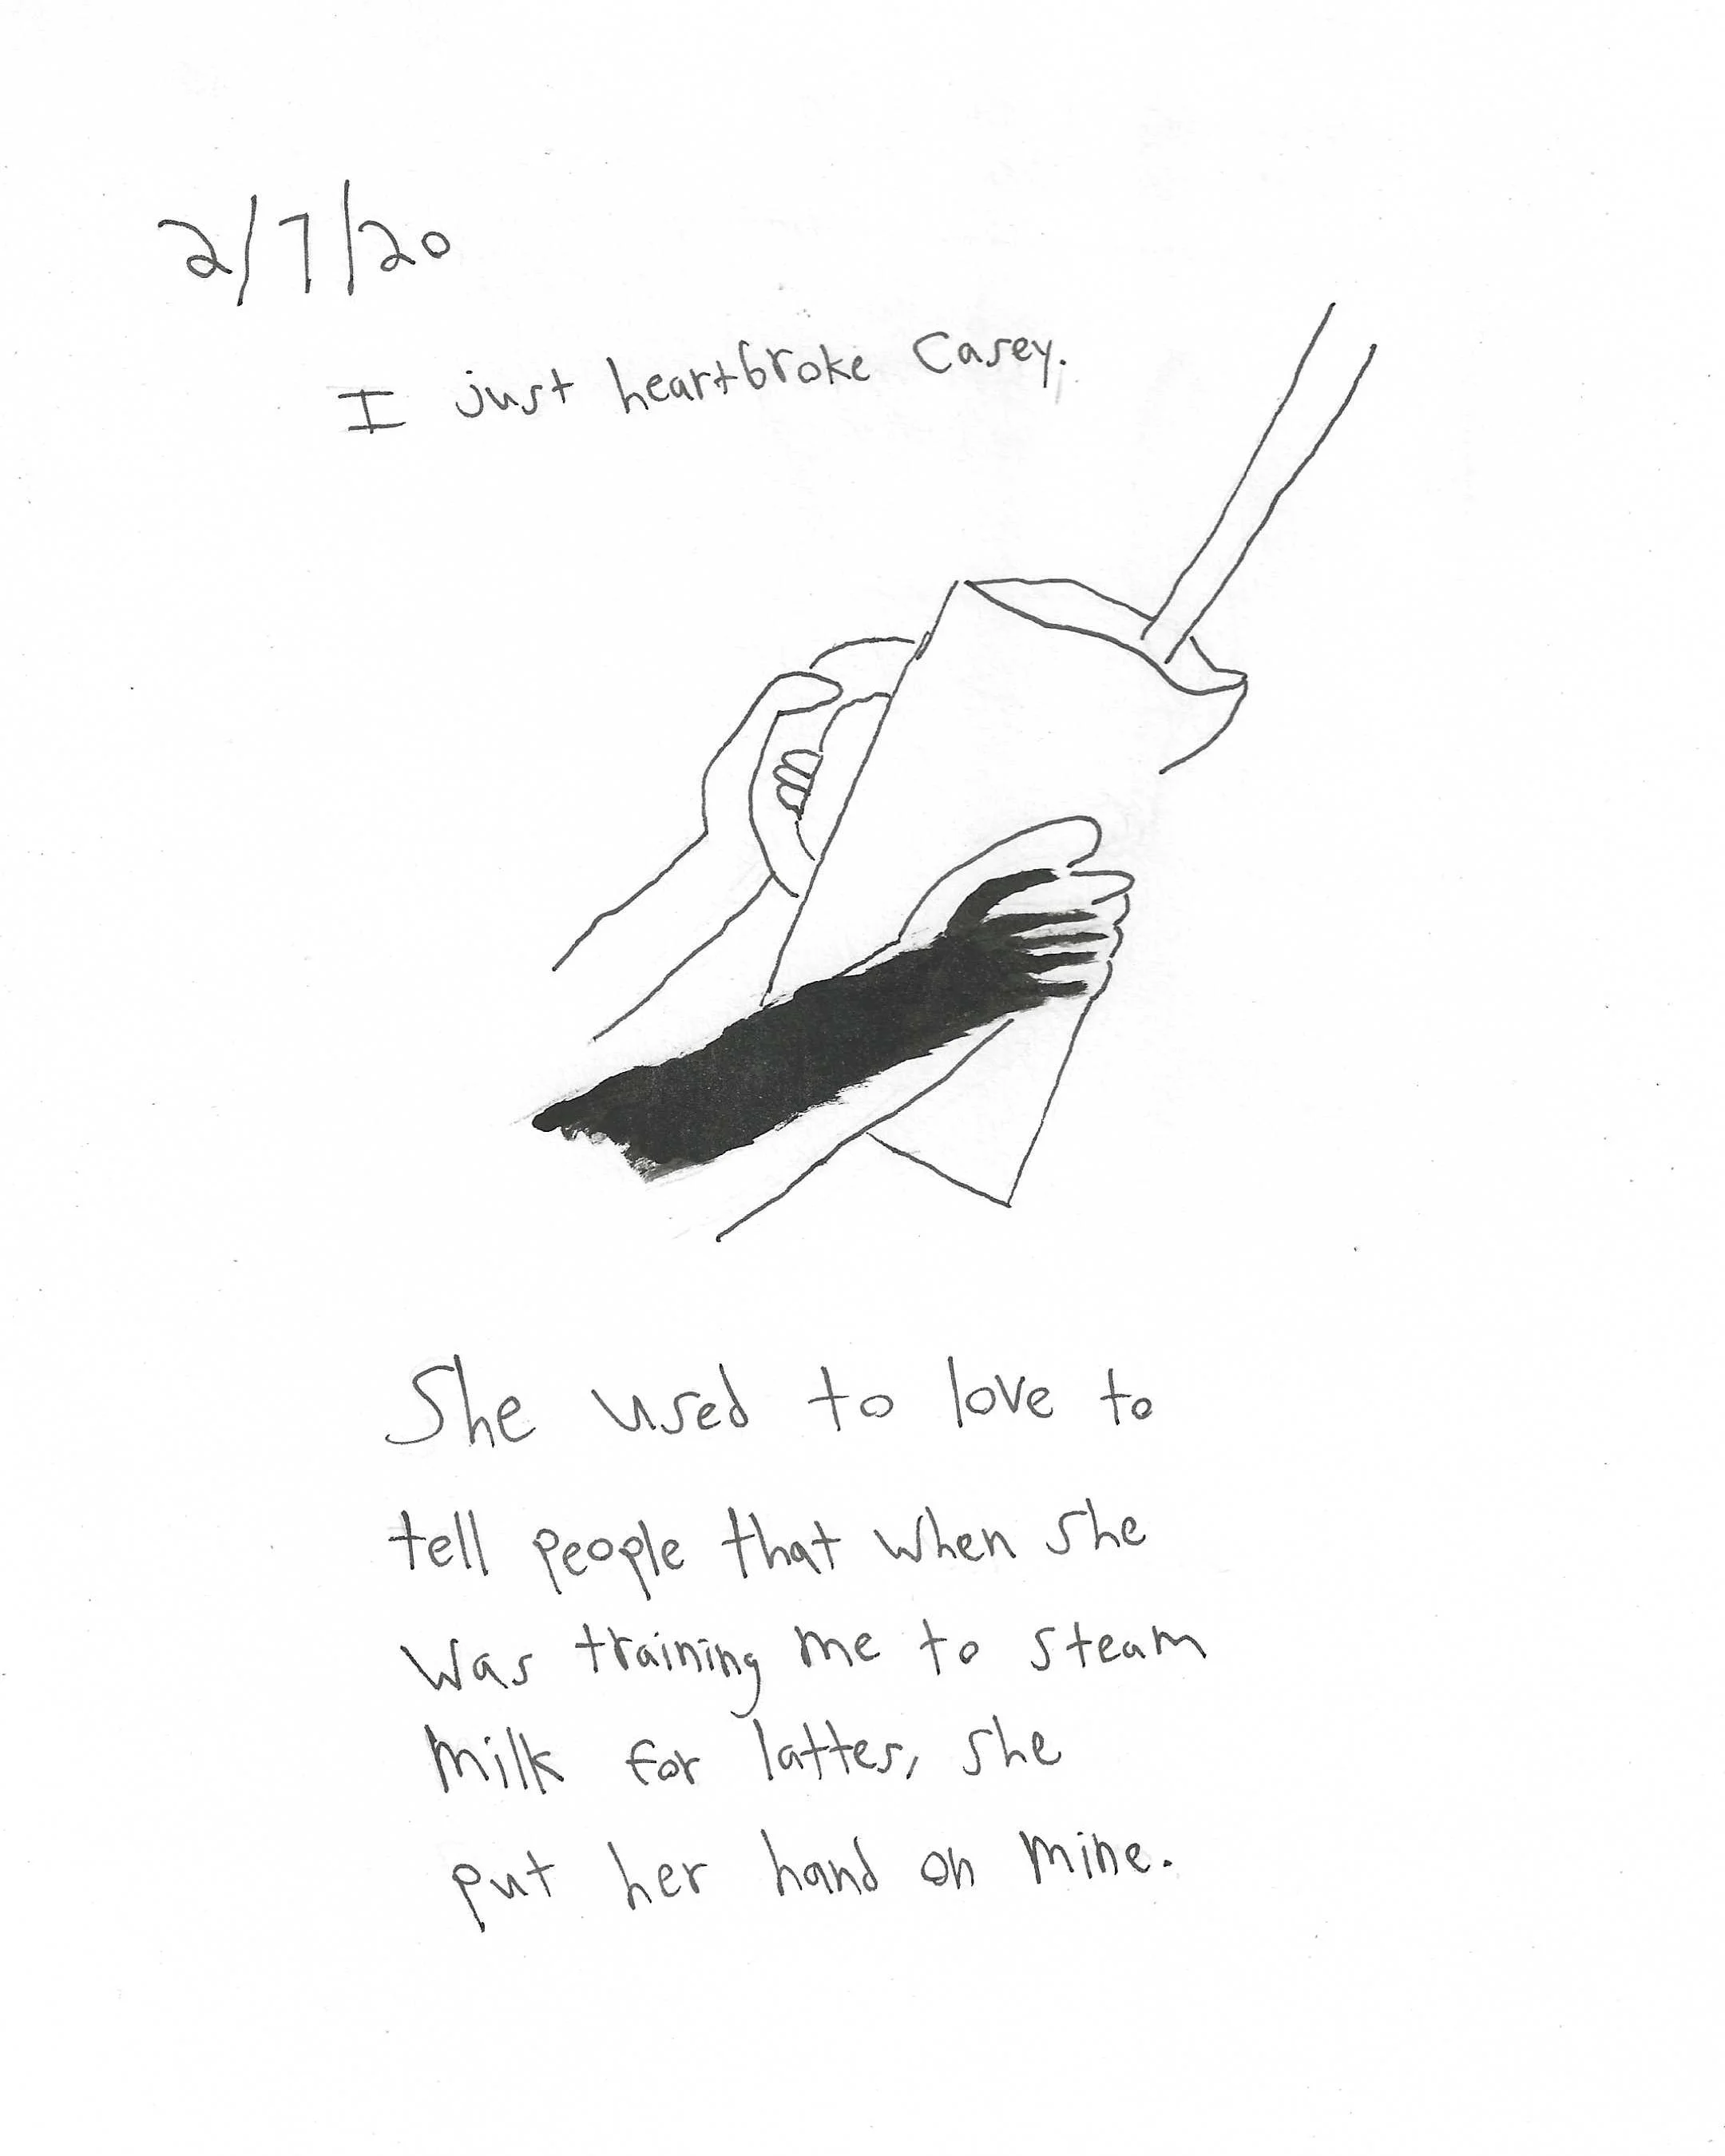 2/7/20
I just heartbroke Casey.
She used to love to
tell people that when she
was training me to steam
milk for lattes, she
put her hand on mine.